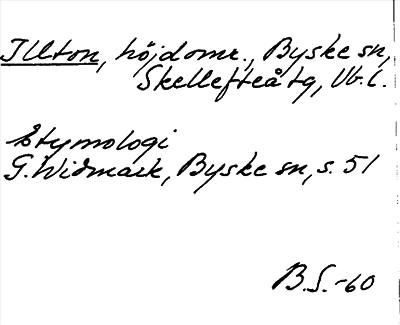 Illton, höjdomr., Byske sn,
Skellefteå tg, Vb. l.
Etymologi
G. Widmark, Byske sn, s. 51
B.S. -60